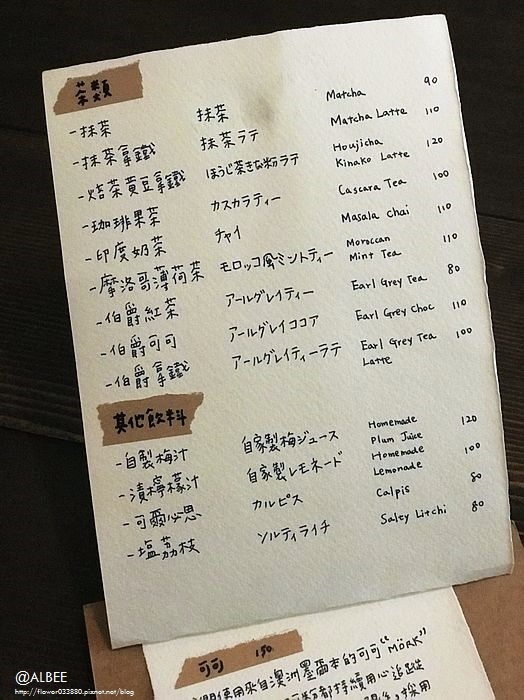 茶類
-抹茶 抹茶 Matcha 90
-抹茶拿鐵 抹茶ラテ Matcha Latte 110
-焙茶黃豆拿鐵 ほうじ茶きな粉ラテ Houjicha Kinako Latte 120
-珈琲果茶 カスカラティー Cascara Tea 100
-印度奶茶 チャイ Masala Chai 110
-摩洛哥薄荷茶 モロッコ風ミントティー Moroccan Mint Tea 110
-伯爵紅茶 アールグレイティー Earl Grey Tea 80
-伯爵可可 アールグレイココア Earl Grey Choc 110
-伯爵拿鐵 アールグレイティーラテ Earl Grey Tea Latte 100
其他飲料
-自製梅汁 自家製梅ジュース Homemade Plum Juice 120
-漬檸檬汁 自家製レモネード Homemade Lemonade 100
-可爾必思 カルピス Calpis 80
-塩荔枝 ソルティライチ Salty Litchi 80
可可 150
使用來自澳洲墨爾本的可可"MÖRK"
都持續用心追蹤
@ALBEE
http://flower033880.pixnet.net/blog